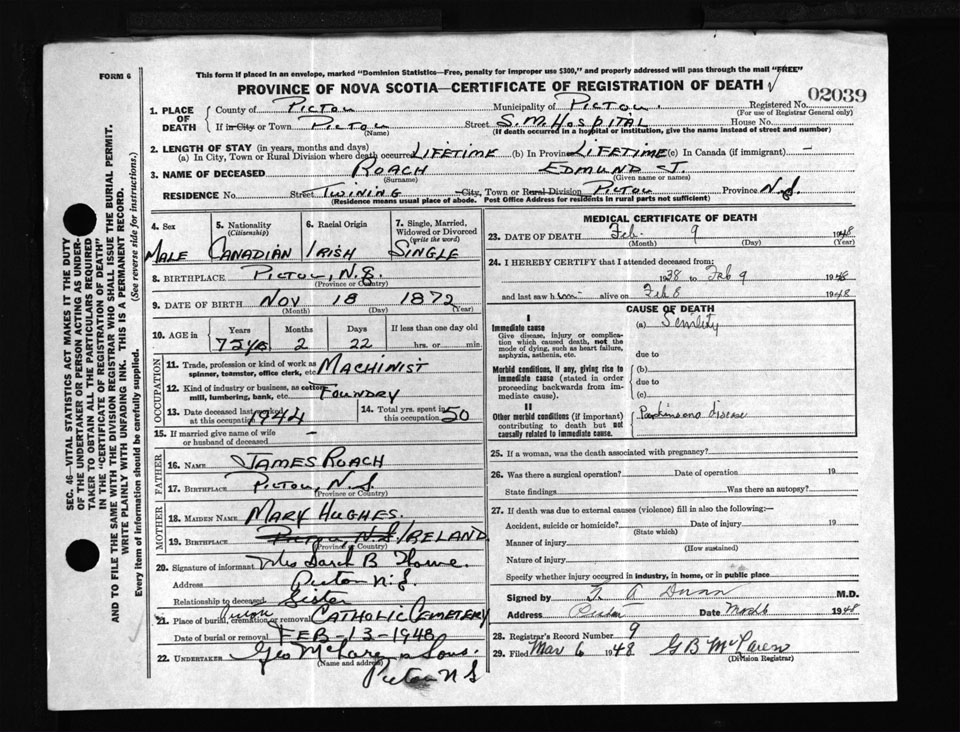 FORM 6
This form if placed in an envelope, marked "Dominion Statistics—Free, penalty for improper use $300," and properly addressed will pass through the mail "FREE"
PROVINCE OF NOVA SCOTIA—CERTIFICATE OF REGISTRATION OF DEATH
02039
1. PLACE OF DEATH
County of Pictou Municipality of Pictou. Registered No.
(For use of Registrar General only)
If in City or Town Pictou Street S.M. Hospital House No.
(Name) (If death occurred in a hospital or institution, give the name instead of street and number)
2. LENGTH OF STAY (in years, months and days)
(a) In City, Town or Rural Division where death occurred LIFETIME (b) In Province LIFETIME (c) In Canada (if immigrant) —
3. NAME OF DECEASED ROACH EDMUND J.
(Surname) (Given name or names)
RESIDENCE No. Street TWINING City, Town or Rural Division PICTOU Province N.S.
(Residence means usual place of abode. Post Office Address for residents in rural parts not sufficient)
4. Sex 5. Nationality (Citizenship) 6. Racial Origin 7. Single, Married, Widowed or Divorced (write the word)
MALE CANADIAN IRISH SINGLE
8. BIRTHPLACE PICTOU, N.S.
(Province or Country)
9. DATE OF BIRTH NOV 18 1872
(Month) (Day) (Year)
10. AGE in Years Months Days If less than one day old
75 2 22 hrs. or min.
OCCUPATION
11. Trade, profession or kind of work as spinner, teamster, office clerk, etc. MACHINIST
12. Kind of industry or business, as cotton mill, lumbering, bank, etc. FOUNDRY
13. Date deceased last worked at this occupation 1944 14. Total yrs. spent in this occupation 50
15. If married give name of wife or husband of deceased —
FATHER
16. NAME JAMES ROACH
17. BIRTHPLACE PICTOU, N.S.
(Province or Country)
MOTHER
18. MAIDEN NAME MARY HUGHES.
19. BIRTHPLACE Pictou, N.S. IRELAND.
(Province or Country)
20. Signature of informant Mrs Sarah B
Address Pictou N.S.
Relationship to deceased Sister
21. Place of burial, cremation or removal Pictou CATHOLIC CEMETERY
Date of burial or removal FEB-13-1948
22. UNDERTAKER Geo McLaren & Sons.
(Name and address)
Pictou N S
MEDICAL CERTIFICATE OF DEATH
23. DATE OF DEATH Feb. 9 1948
(Month) (Day) (Year)
24. I HEREBY CERTIFY that I attended deceased from:
1938 to Feb 9 1948
and last saw him alive on Feb 8 1948
CAUSE OF DEATH
I
Immediate cause
Give disease, injury or complication which caused death, not the mode of dying, such as heart failure, asphyxia, asthenia, etc.
(a) Senility
due to
Morbid conditions, if any, giving rise to immediate cause (stated in order proceeding backwards from immediate cause).
(b)
due to
(c)
II
Other morbid conditions (if important) contributing to death but not causally related to immediate cause.
Parkinsons disease
25. If a woman, was the death associated with pregnancy?
26. Was there a surgical operation? Date of operation 19
State findings Was there an autopsy?
27. If death was due to external causes (violence) fill in also the following:—
Accident, suicide or homicide? Date of injury 19
(State which)
Manner of injury
(How sustained)
Nature of injury
Specify whether injury occurred in industry, in home, or in public place
Signed by Dunn M.D.
Address Pictou Date 1948
28. Registrar's Record Number 9
29. Filed Mar 6 1948 G B McLaren
(Division Registrar)
SEC. 46—VITAL STATISTICS ACT MAKES IT THE DUTY OF THE UNDERTAKER OR PERSON ACTING AS UNDERTAKER TO OBTAIN ALL THE PARTICULARS REQUIRED IN THE "CERTIFICATE OF REGISTRATION OF DEATH" AND TO FILE THE SAME WITH THE DIVISION REGISTRAR WHO SHALL ISSUE THE BURIAL PERMIT.
WRITE PLAINLY WITH UNFADING INK. THIS IS A PERMANENT RECORD.
Every item of information should be carefully supplied. (See reverse side for instructions.)